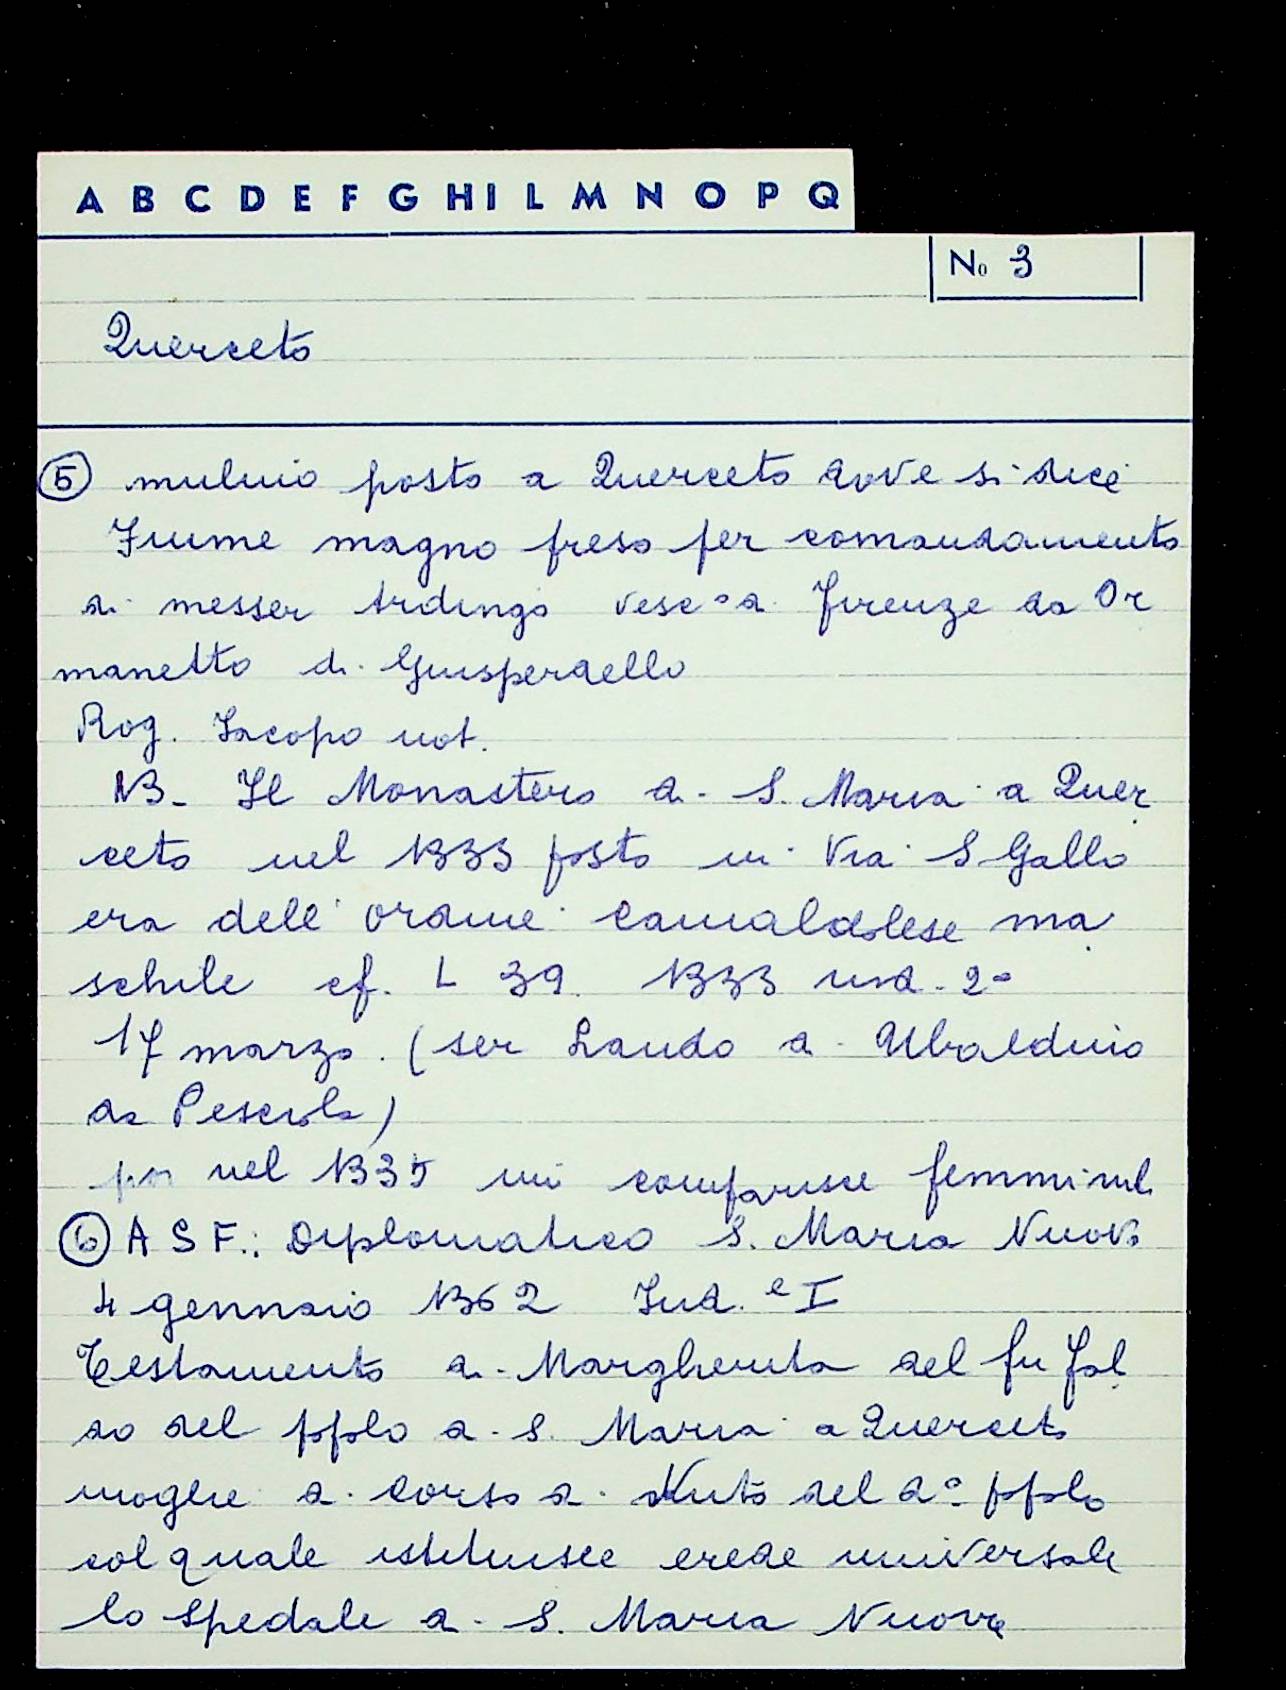 A B C D E F G H I L M N O P Q
No 3
Querceto
5 mulino posto a Querceto dove si dice
Fiume magno preso per comandamento
di messer Ardingo vesc° di Firenze da Or
manetto di Guisperdello
Rog. Iacopo not.
NB- Il Monastero di S. Maria a Quer
ceto nel 1333 posto in Via S Gallo
era dell'ordine camaldolese ma
schile cf. L 39 1333 ind. 2a
17 marzo. (ser Lando di Ubaldino
da Pesciola)
poi nel 1335 mi comparisce femminil
6 A S F.: Diplomatico S. Maria Nuova
4 gennaio 1362 Ind. e I
Testamento di Margherita del fu Fal
do del poplo di S. Maria a Querceto
moglie di Corso di Nuto del do poplo
col quale istituisce erede universale
lo Spedale di S. Maria Nuova